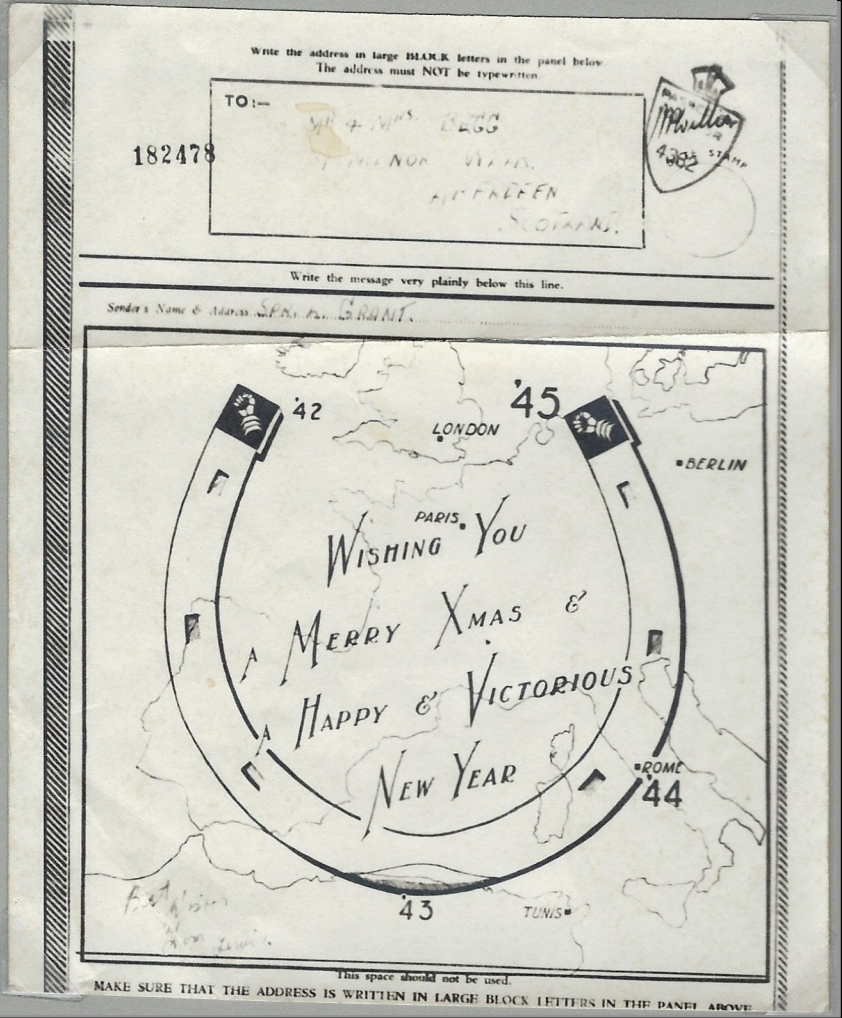 Write the address in large BLOCK letters in the panel below.
The address must NOT be typewritten.
TO:—
MR & MRS. BEGG
MANOR
ABERDEEN
SCOTLAND.
182478
4382
STAMP
Write the message very plainly below this line.
Sender's Name & Address SPR. A. GRANT.
'42
'45
LONDON
BERLIN
PARIS
WISHING YOU
A MERRY XMAS &
A HAPPY & VICTORIOUS
NEW YEAR
ROME
'44
'43
TUNIS
Best Wishes
from
This space should not be used.
MAKE SURE THAT THE ADDRESS IS WRITTEN IN LARGE BLOCK LETTERS IN THE PANEL ABOVE